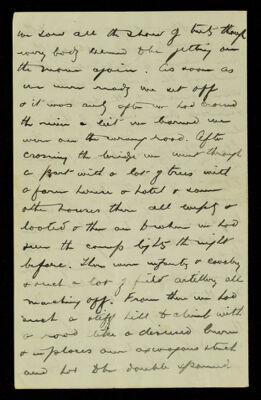 we saw all the show of tents though
every body seemed to be getting on
the move again. As soon as
we were ready we set off
& it was only after we had crossed
the river a bit we learned we
were on the wrong road. After
crossing the bridge we went through
a part with a lot of trees with
a farm house & hotel & some
other houses there all empty &
looted & then on broken we had
seen the camp lights the night
before. There were infantry & cavalry
& such a lot of field artillery all
marching off. From there we had
such a stiff hill to climb with
a road like a disused
& in places our waggons stuck
and had to be double spanned